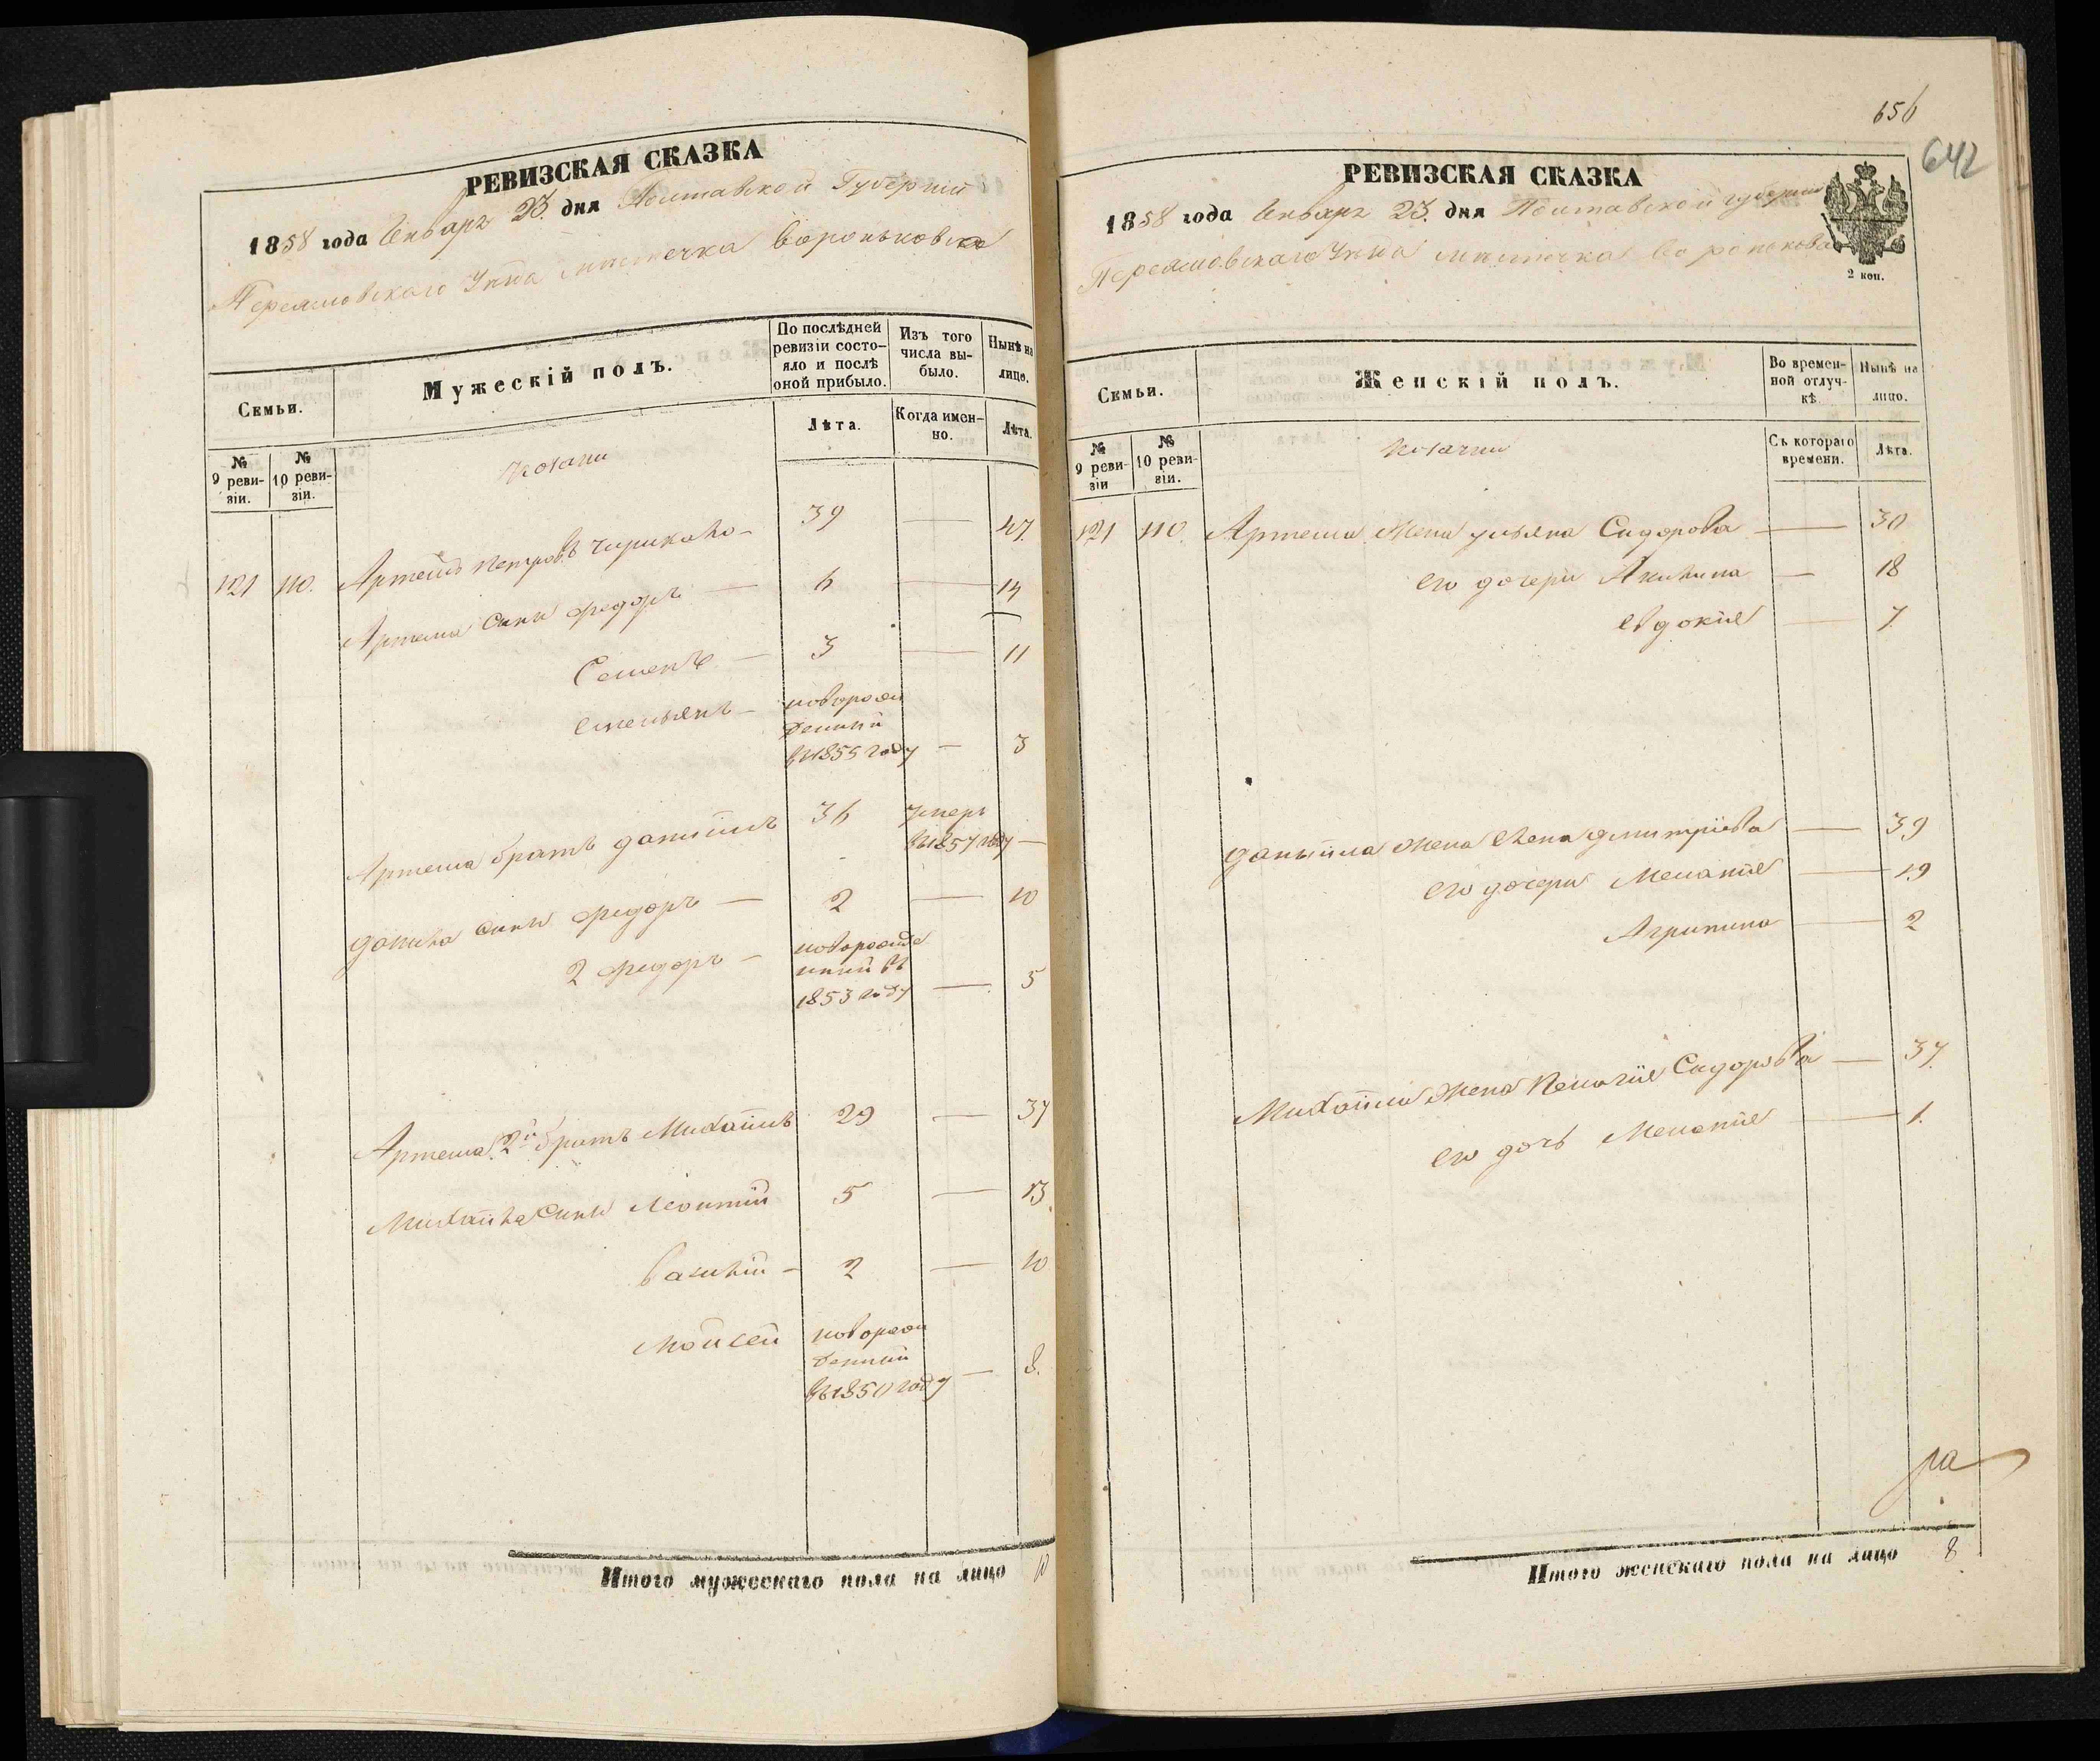 РЕВИЗСКАЯ СКАЗКА
1858 года Январz 23 дня Полтавской Губерніи
Переяславскаго Уѣзда мѣстечка Вороньковка
Семьи.
Мужескій полъ.
По послѣдней ревизіи состояло и послѣ оной прибыло.
Изъ того числа выбыло.
Нынѣ на лицо.
№ 9 ревизіи.
№ 10 ревизіи.
Лѣта.
Когда именно.
Лѣта.
Козаки
121 110. Артемъ Петровъ 39 — 47.
Артема сыни Федоръ — 6 — 14
Семенъ — 3 — 11
Емельянъ — новорож
денний
въ 1855 году — 3
Артема братъ Даниилъ 36 Умеръ
въ 1857 году —
Данила сыни Федоръ — 2 — 10
2 Федоръ — новорожде
нний въ
1853 году — 5
Артема 2й братъ Михаилъ 29 — 37
Михаила сыни Леонтій 5 — 13.
Василій — 2 — 10
Мойсей новорож
денний
въ 1850 году — 8.
Итого мужескаго пола на лицо 10
656
642
РЕВИЗСКАЯ СКАЗКА
1858 года Январz 23. дня Полтавской губерніи
Переяславскаго Уѣзда мѣстечка Воронькова
2 коп.
Семьи.
Женскій полъ.
Во временной отлучкѣ
Нынѣ на лицо.
№ 9 ревизіи
№ 10 ревизіи.
Съ котораго времени.
Лѣта.
Козачки
121 110. Артема жена Ульяна Сидорова — 30
его дочери Акилина — 18
Евдокія — 7
Даниила жена Елена Дмитріева — 39
его дочери Меланія — 19
Агрипина — 2
Михаила жена Пелагія Сидорова — 37.
его дочь Меланія — 1.
Итого женскаго пола на лицо 8